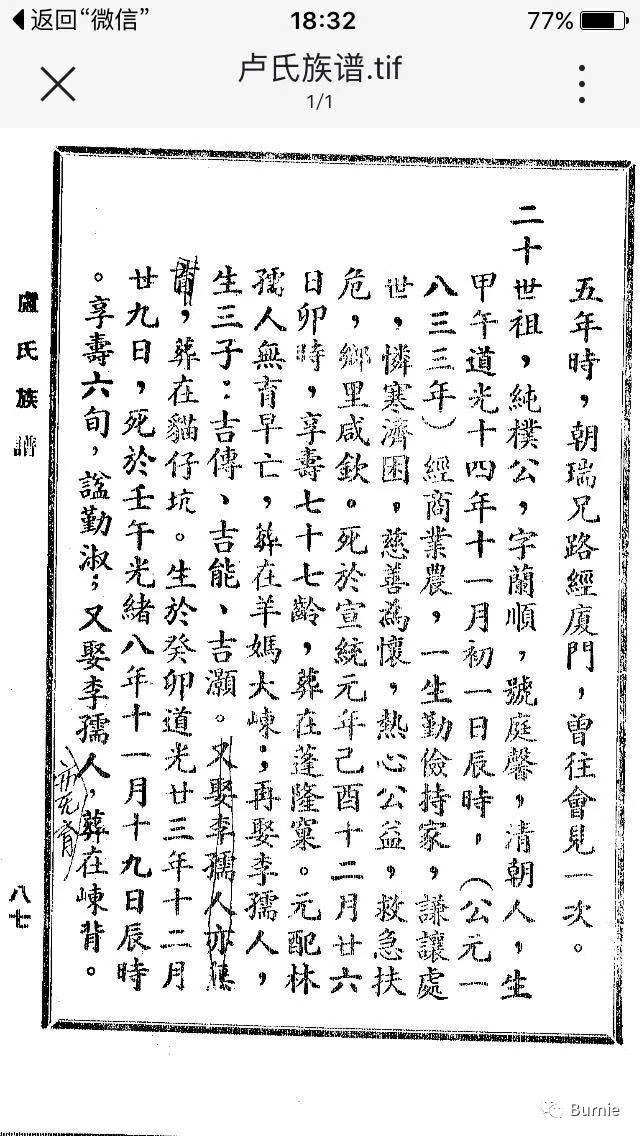 返回“微信”
18:32
77%
卢氏族谱.tif
1/1
五年時，朝瑞兄路經廈門，曾往會見一次。
二十世祖，純樸公，字蘭順，號庭馨，清朝人，生
甲午道光十四年十一月初一日辰時，（公元一
八三三年）經商業農，一生勤儉持家，謙讓處
世，憐寒濟困，慈善為懷，熱心公益，救急扶
危，鄉里咸欽。死於宣統元年己酉十二月廿六
日卯時，享壽七十七齡，葬在蓬隆窠。元配林
孺人無育早亡，葬在羊媽大崠；再娶李孺人，
生三子：吉傳、吉能、吉灝。又娶李孺人亦無
育，葬在貓仔坑。生於癸卯道光廿三年十二月
廿九日，死於壬午光緒八年十一月十九日辰時
。享壽六旬，諡勤淑；又娶李孺人，葬在崠背。
亦无育
盧氏族譜
八七
Burnie